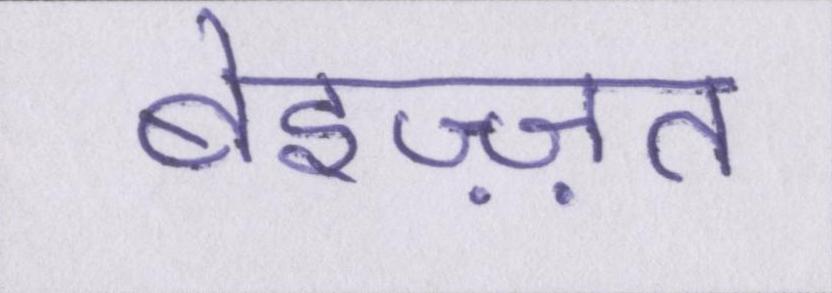 बेइज़्ज़त